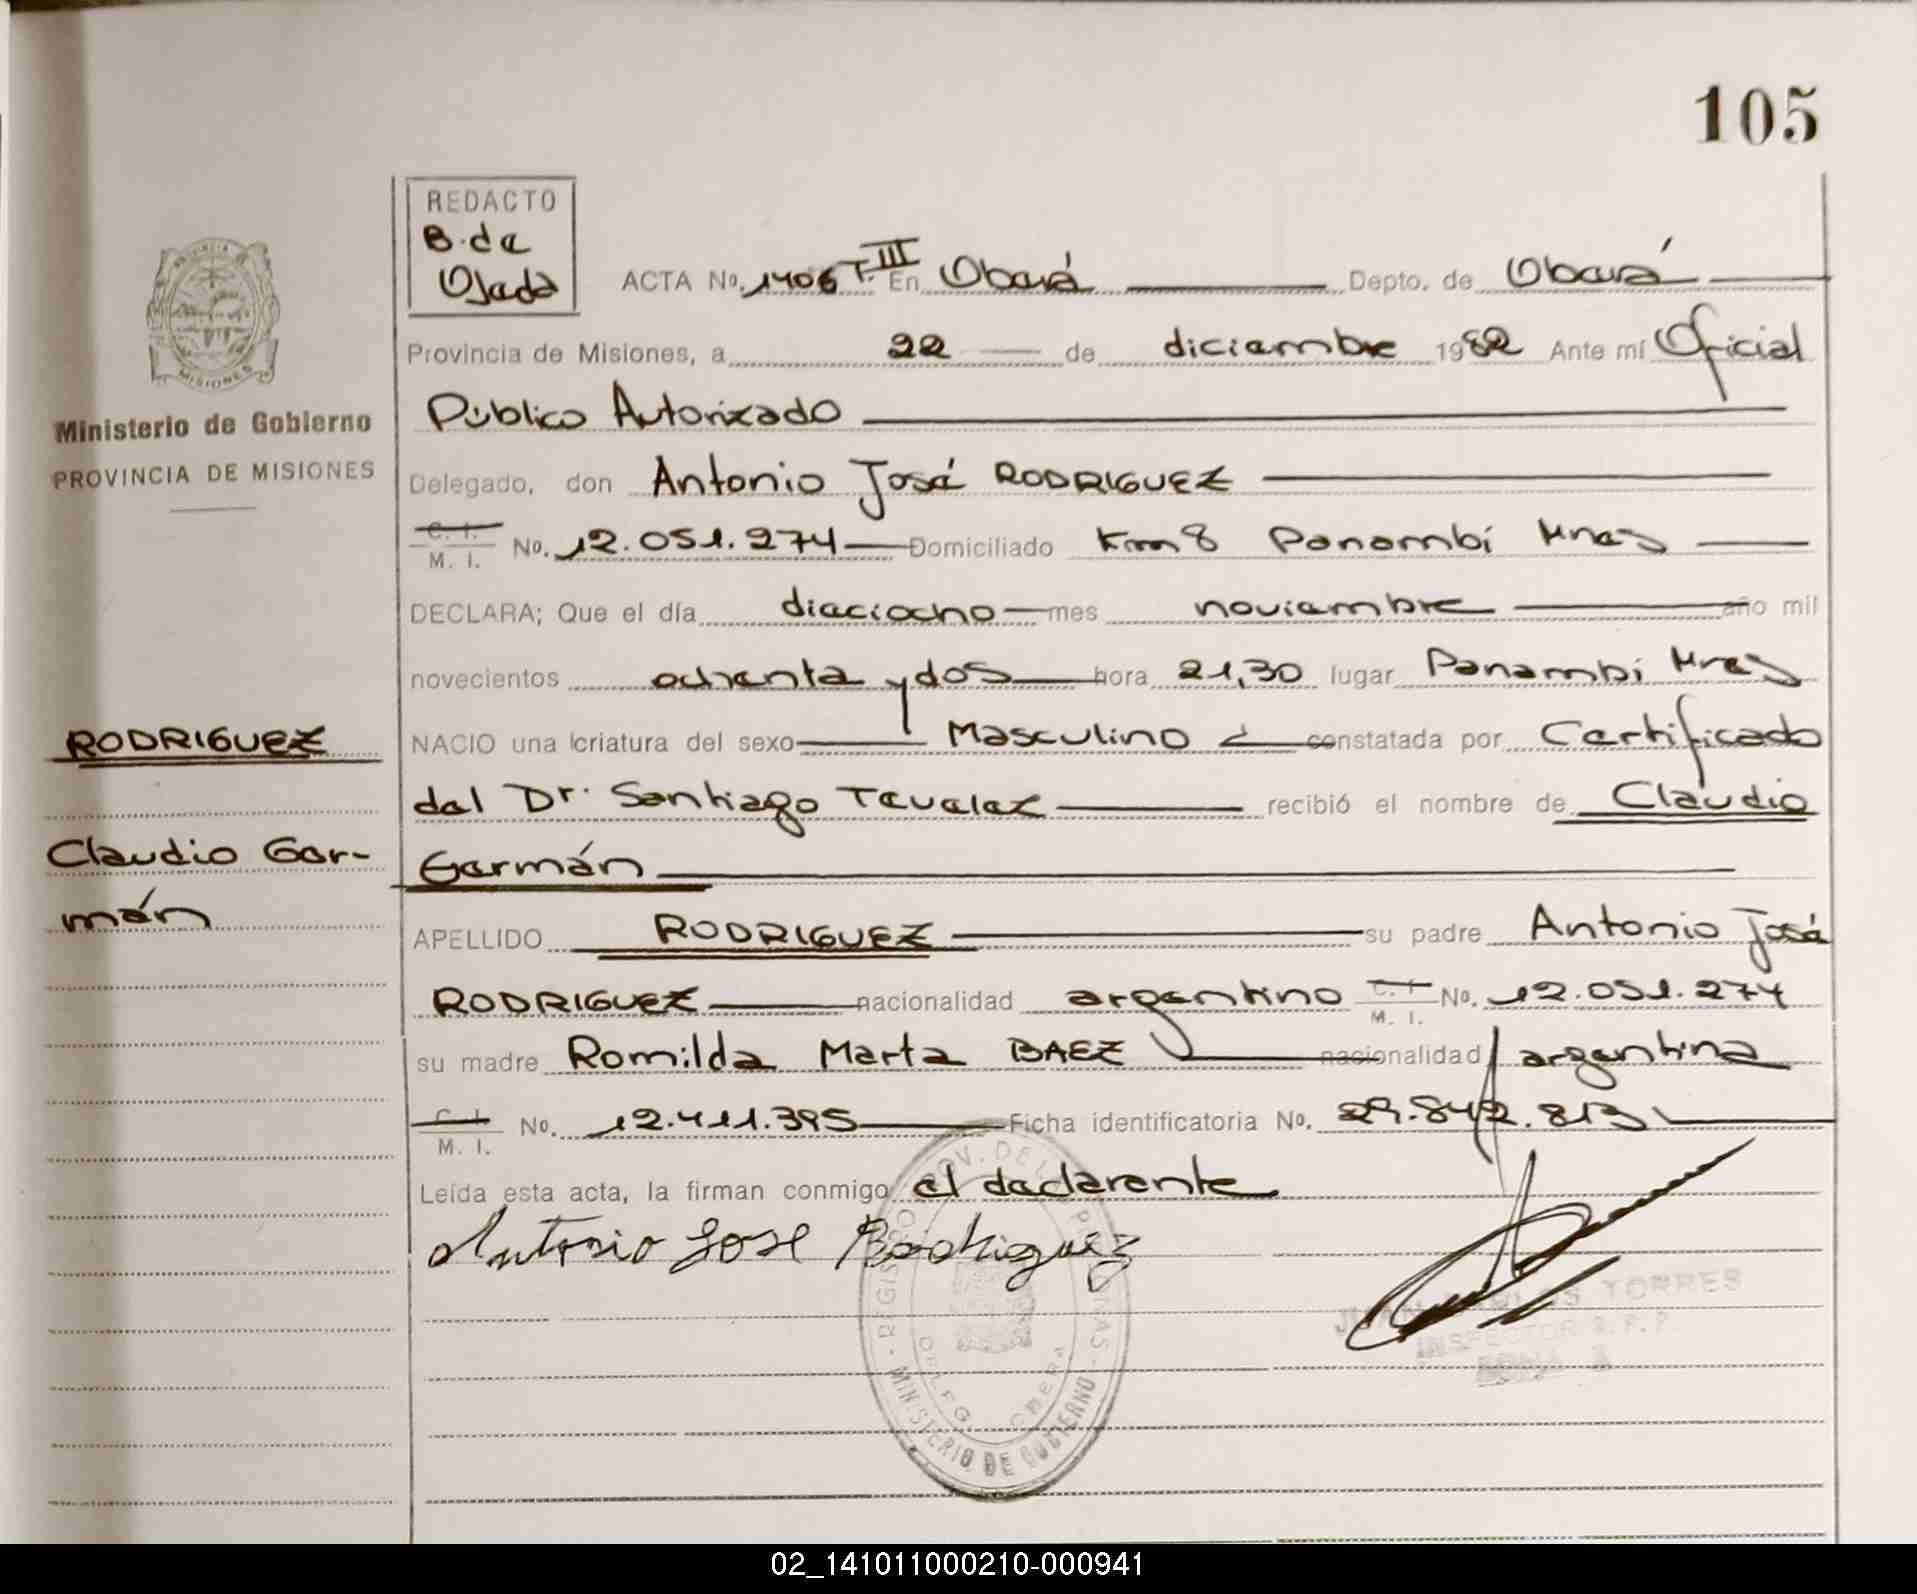 105
REDACTO
B. de
Ojeda
ACTA No. 1406 T. III En Oberá Depto. de Oberá
Provincia de Misiones, a 22 de diciembre 1982 Ante mí Oficial
Público Autorizado
Delegado, don Antonio José RODRIGUEZ
C. I.
M. I. No. 12.051.274 Domiciliado Km 8 Panambí Mnes
DECLARA; Que el día dieciocho mes noviembre año mil
novecientos ochenta y dos hora 21,30 lugar Panambí Mnes
NACIO una criatura del sexo Masculino constatada por Certificado
del Dr. Santiago recibió el nombre de Claudio
Germán
APELLIDO RODRIGUEZ su padre Antonio José
RODRIGUEZ nacionalidad argentino C. I. M. I. No. 12.051.274
su madre Romilda Marta BAEZ nacionalidad argentina
C. I.
M. I. No. 12.411.395 Ficha identificatoria No. 29.842.813
Leída esta acta, la firman conmigo el declarante
Antonio Jose Rodriguez
TORRES
INSPECTOR R.P.P.
MINISTERIO DE GOBIERNO
PROVINCIA DE
MISIONES
Ministerio de Gobierno
PROVINCIA DE MISIONES
RODRIGUEZ
Claudio Ger-
mán
02_141011000210-000941